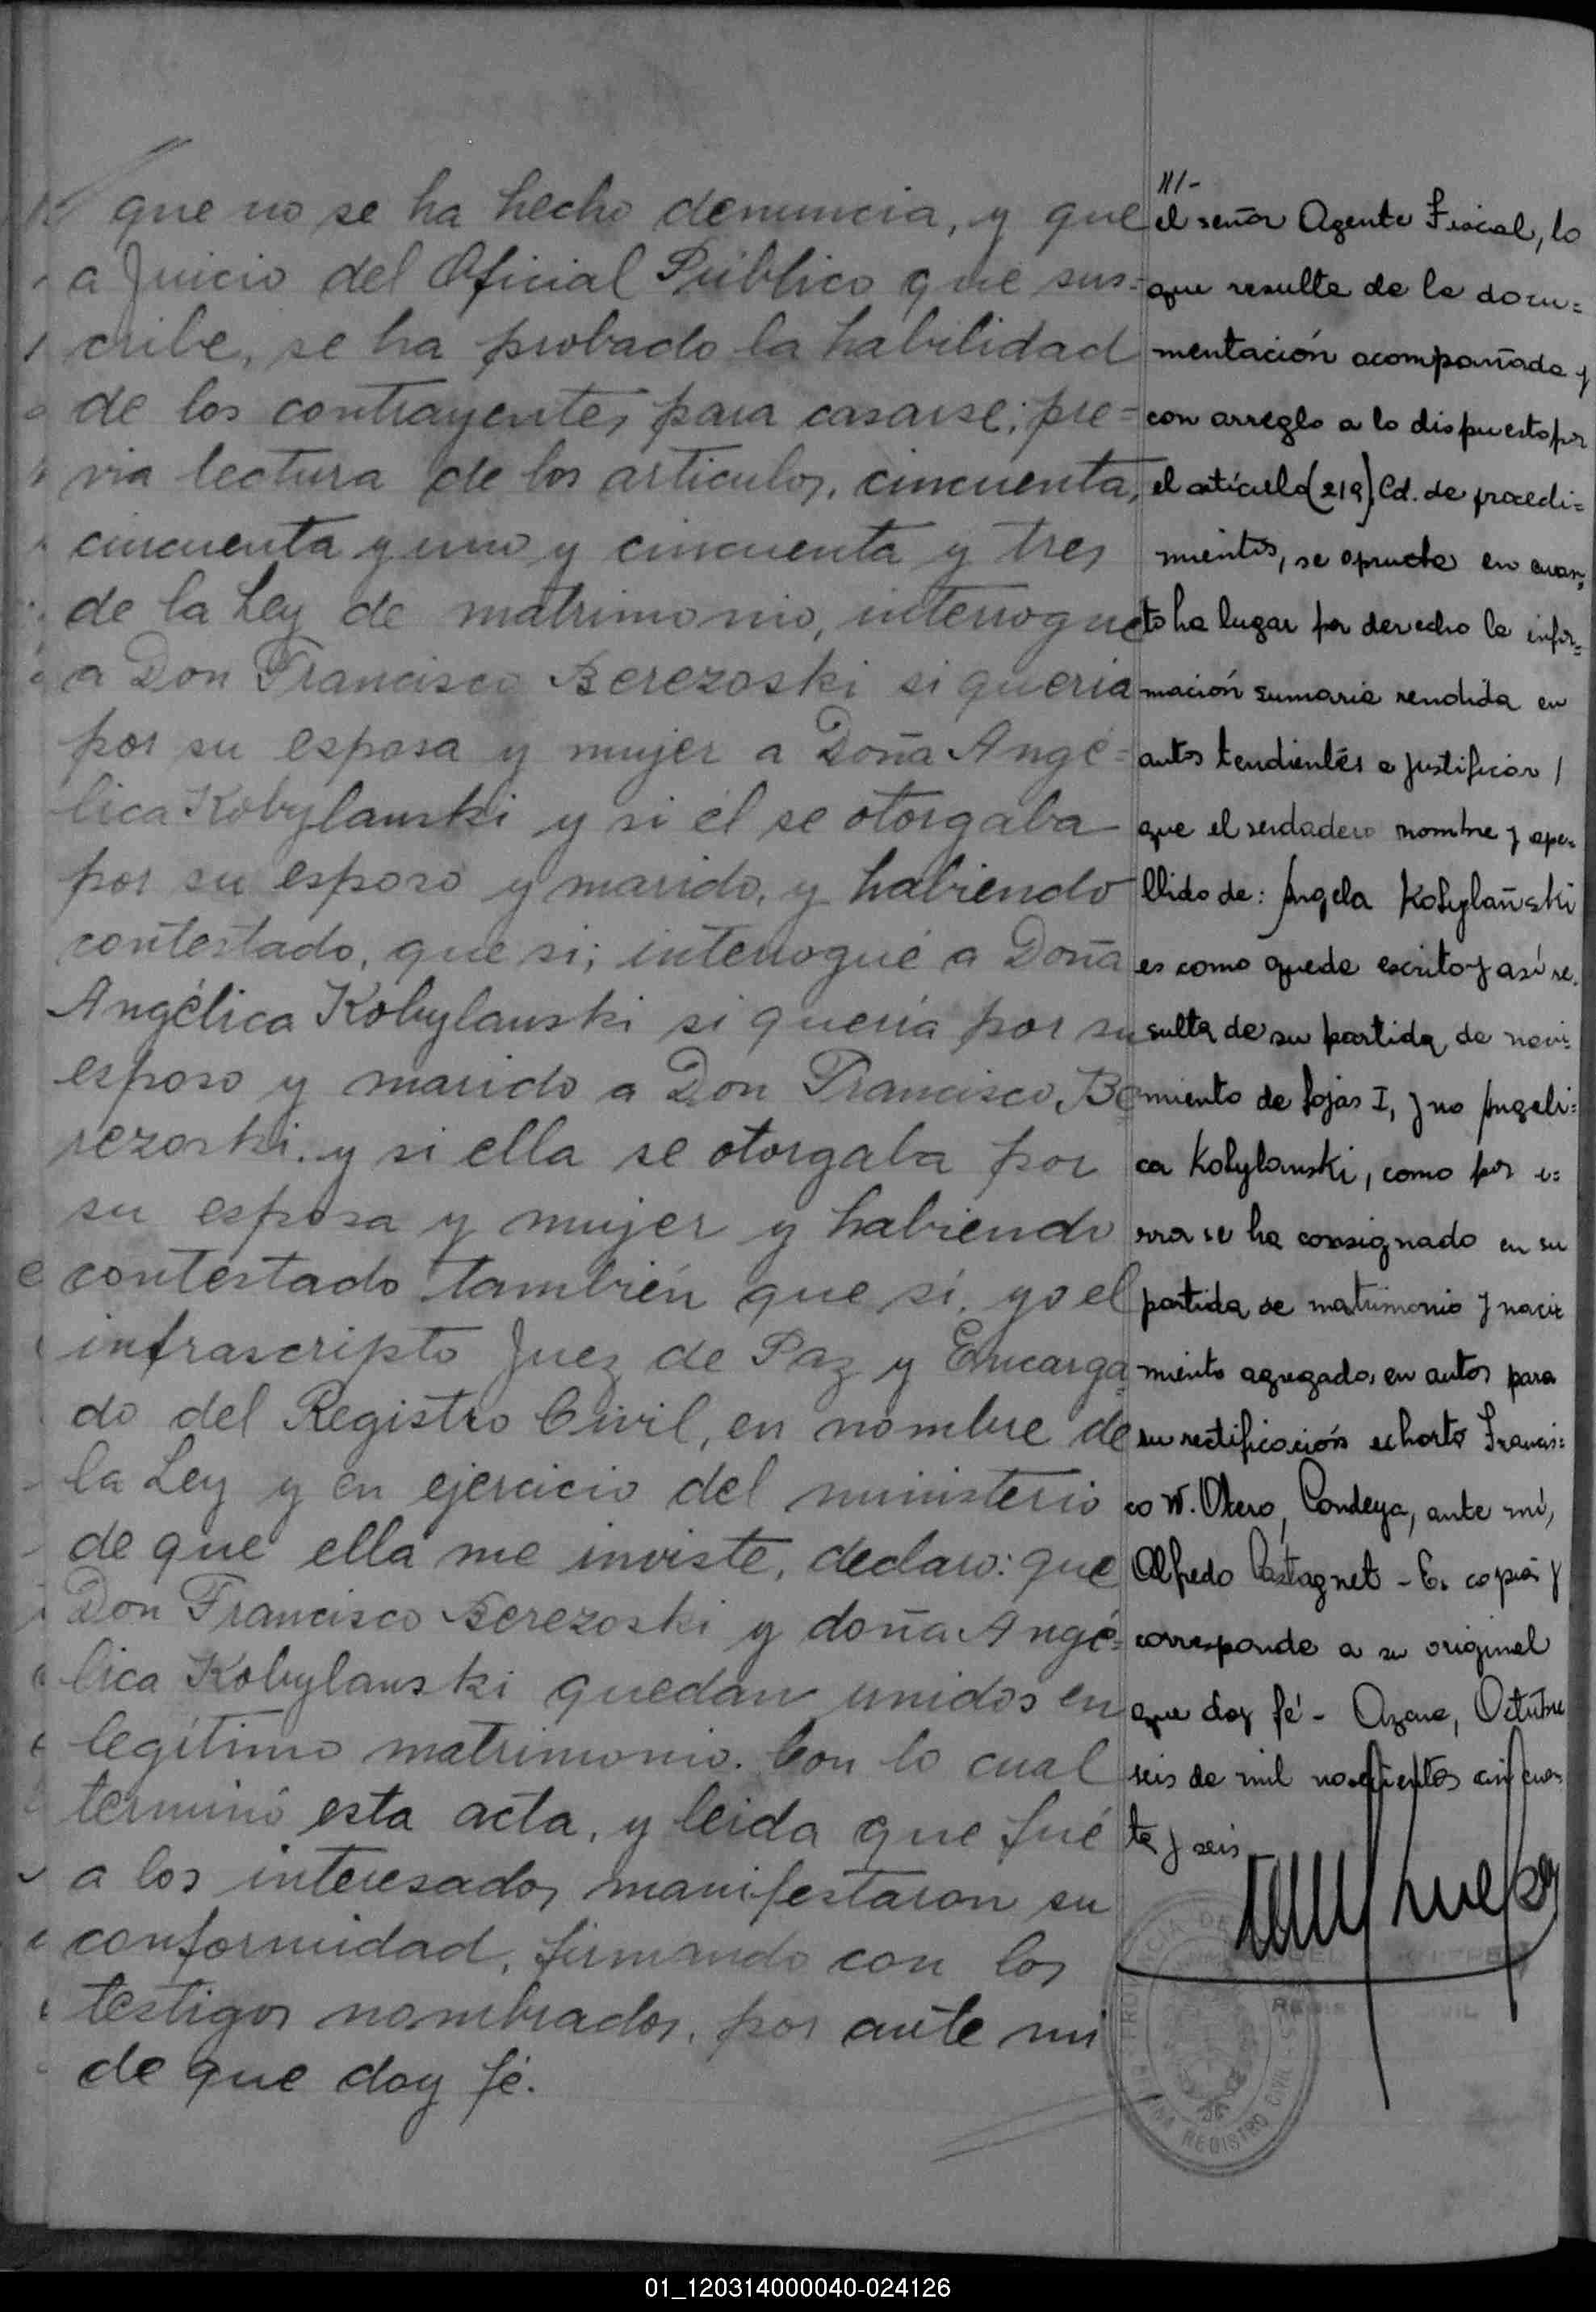 que no se ha hecho denuncia, y que
a Juicio del Oficial Público que sus=
cribe, se ha probado la habilidad
de los contrayentes para casarse; pre=
via lectura de los articulos, cincuenta,
cincuenta y uno y cincuenta y tres
de la Ley de matrimonio, interrogué
a Don Francisco Berezoski si quería
por su esposa y mujer a Doña Angé=
lica Kobylanski y si él se otorgaba
por su esposo y marido, y habiendo
contestado, que si; interrogué a Doña
Angélica Kobylanski si quería por su
esposo y marido a Don Francisco Be
rezoski, y si ella se otorgaba por
su esposa y mujer y habiendo
contestado también que si, yo el
infrascripto Juez de Paz y Encarga=
do del Registro Civil, en nombre de
la Ley y en ejercicio del ministerio
de que ella me inviste, declaro: que
Don Francisco Berezoski y doña Angé=
lica Kobylanski quedan unidos en
legítimo matrimonio. Con lo cual
terminó esta acta, y leida que fué
a los interesados manifestaron su
conformidad, firmando con los
testigos nombrados, por ante mi
de que doy fé.
///-
el señor Agente Fiscal, lo
que resulta de la docu=
mentación acompañada y
con arreglo a lo dispuesto por
el artículo (219) Cd. de procedi=
mientos, se aprueba en cuan=
to ha lugar por derecho la infor=
mación sumaria rendida en
autos tendientes a justificar /
que el verdadero nombre y ape=
llido de: Angela Kobylañski
es como queda escrito y así re=
sulta de su partida de naci=
miento de fojas I, y no Angeli=
ca Kobylanski, como por e=
rror se ha consignado en su
partida de matrimonio y naci
miento agregados en autos para
su rectificación exhorto Francis=
co W. Otero, Condeya, ante mí,
Alfredo Castagnet - Es copia y
corresponde a su original
que doy fé - Azara, Octubre
seis de mil novecientos cincuen
ta y seis
REGISTRO CIVIL
01_120314000040-024126